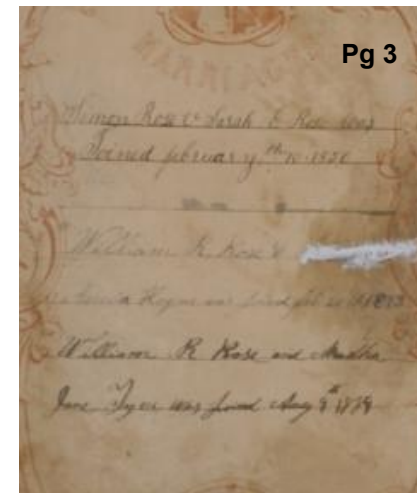 Pg 3
MARRIAGES
Simon Rose & Sarah E Rose was
Joined february th 10. 1850
William R. Rose &
was joined feb
William R Rose and Martha
Jane Tyer was joined Aug 8th